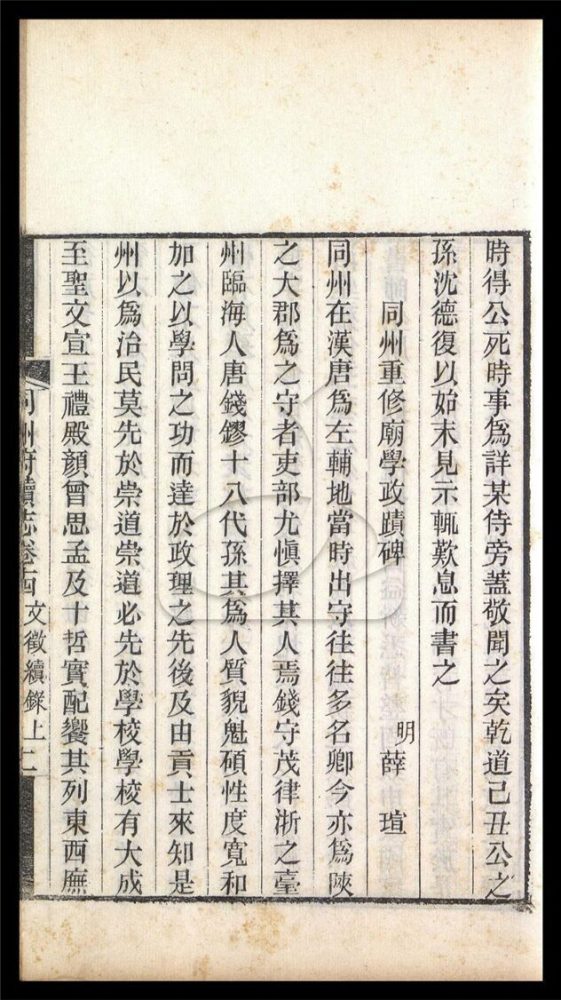 時得公死時事爲詳某侍旁蓋敬聞之矣乾道己丑公之
孫沈德復以始末見示輒歎息而書之
同州重修廟學政蹟碑
明薛瑄
同州在漢唐爲左輔地當時出守往往多名卿今亦爲陜
之大郡爲之守者吏部尤愼擇其人焉錢守茂律浙之臺
州臨海人唐錢鏐十八代孫其爲人質貌魁碩性度寬和
加之以學問之功而達於政理之先後及由貢士來知是
州以爲治民莫先於崇道崇道必先於學校學校有大成
至聖文宣王禮殿顏曾思孟及十哲實配饗其列東西廡
同州府續志卷十四文徵續錄上二